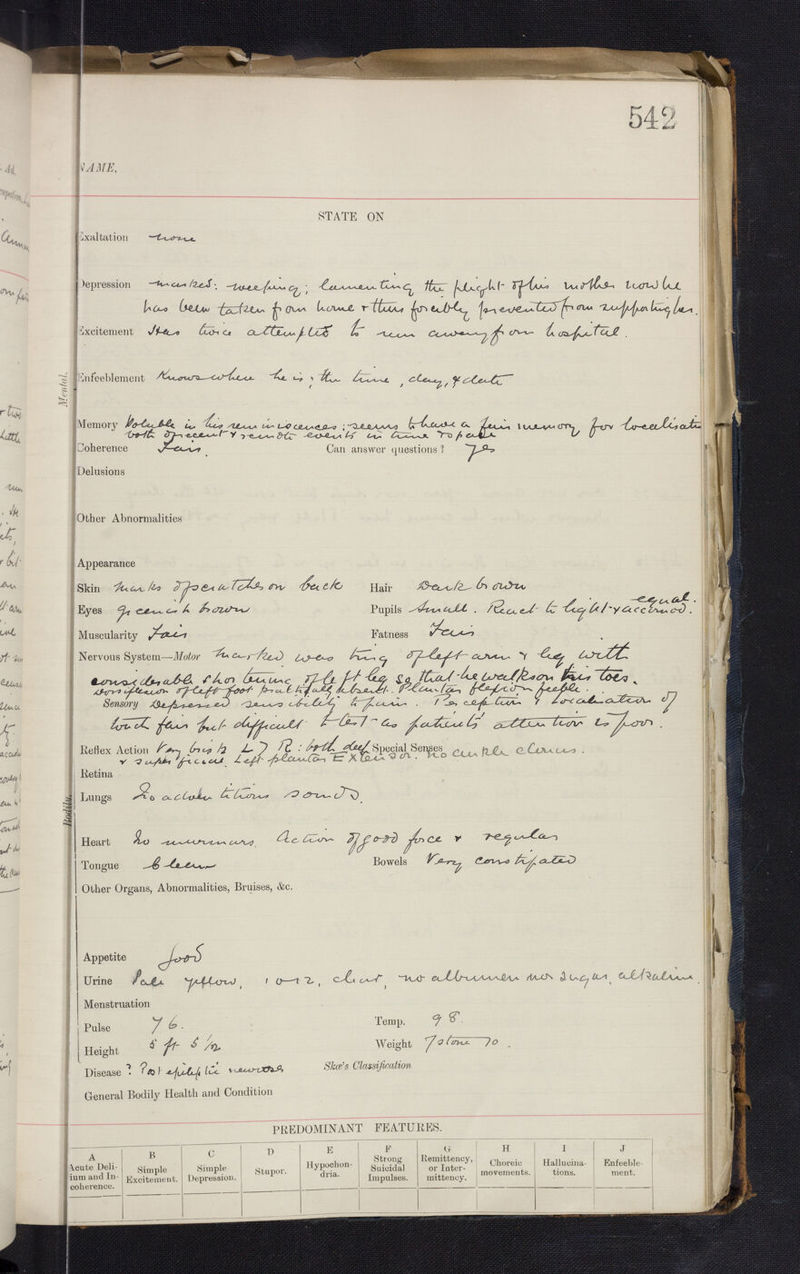 542
NAME.
STATE ON
Mental.
Exaltation none
Depression marked: weeping; lamenting the plight of his mother now he
has been taken from home & thus forcibly prevented from supporting her.
Excitement Has twice attempted to run away from hospital.
Enfeeblement Knows where he is; the time, day, & date
Memory Voluble in his reminiscences; seems to have a fair memory for localisation
both of recent & remote events in time & space
Coherence Fair. Can answer questions? Yes
Delusions
Other Abnormalities
Bodily.
Appearance
Skin Marks of scratches on back Hair Dark brown
Eyes Greenish brown Pupils Small. equal. React to light & accommod.
Muscularity Fair Fatness Fair
Nervous System—Motor Marked wasting of left arm & leg with
considerable shortening of left leg so that he walks on his toes.
Dorsiflexion of left foot practically absent. Plantar flexion feeble.
Sensory Depressed sensibility to pain. Perception & localisation of
touch fair but difficult to test as patients attention is poor.
Reflex Action Very brisk L > R: both deep Special Senses
& superficial. Left plantar Extensor. No ankle clonus.
Retina
Lungs No accidental sounds.
Heart No murmurs. Action of good force & regular
Tongue Clean Bowels Very constipated
Other Organs, Abnormalities, Bruises, &c.
Appetite Good
Urine Pale yellow, 1012, clear, no albumen nor sugar, alkaline.
Menstruation
Pulse 76. Temp. 98.
Height 5 ft 5 1/2 Weight 7 stone 10.
Disease ? Post epileptic neurosis Skæ's Classification
General Bodily Health and Condition
PREDOMINANT FEATURES.
A B C D E F G H I J
Acute Delirium and Incoherence. Simple Excitement. Simple Depression. Stupor. Hypochondria. Strong Suicidal Impulses. Remittency, or Intermittency. Choreic movements. Hallucinations. Enfeeblement.